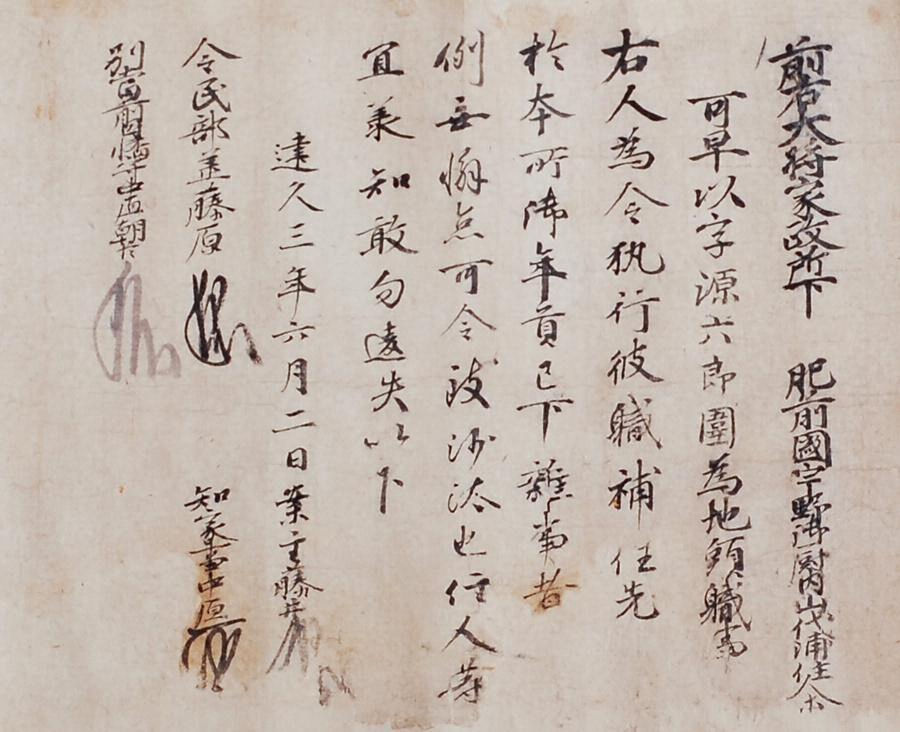 前右大将家政所下 肥前國宇野御厨内山代浦住人
可早以字源六郎圍為地頭職事
右人為令執行彼職補任先
於本所御年貢已下雜事者
例無懈怠可令致沙汰也住人等
宜承知敢勿違失以下
建久三年六月二日 案主藤井
令民部丞藤原 知家事中原
別當前因幡守中原朝臣